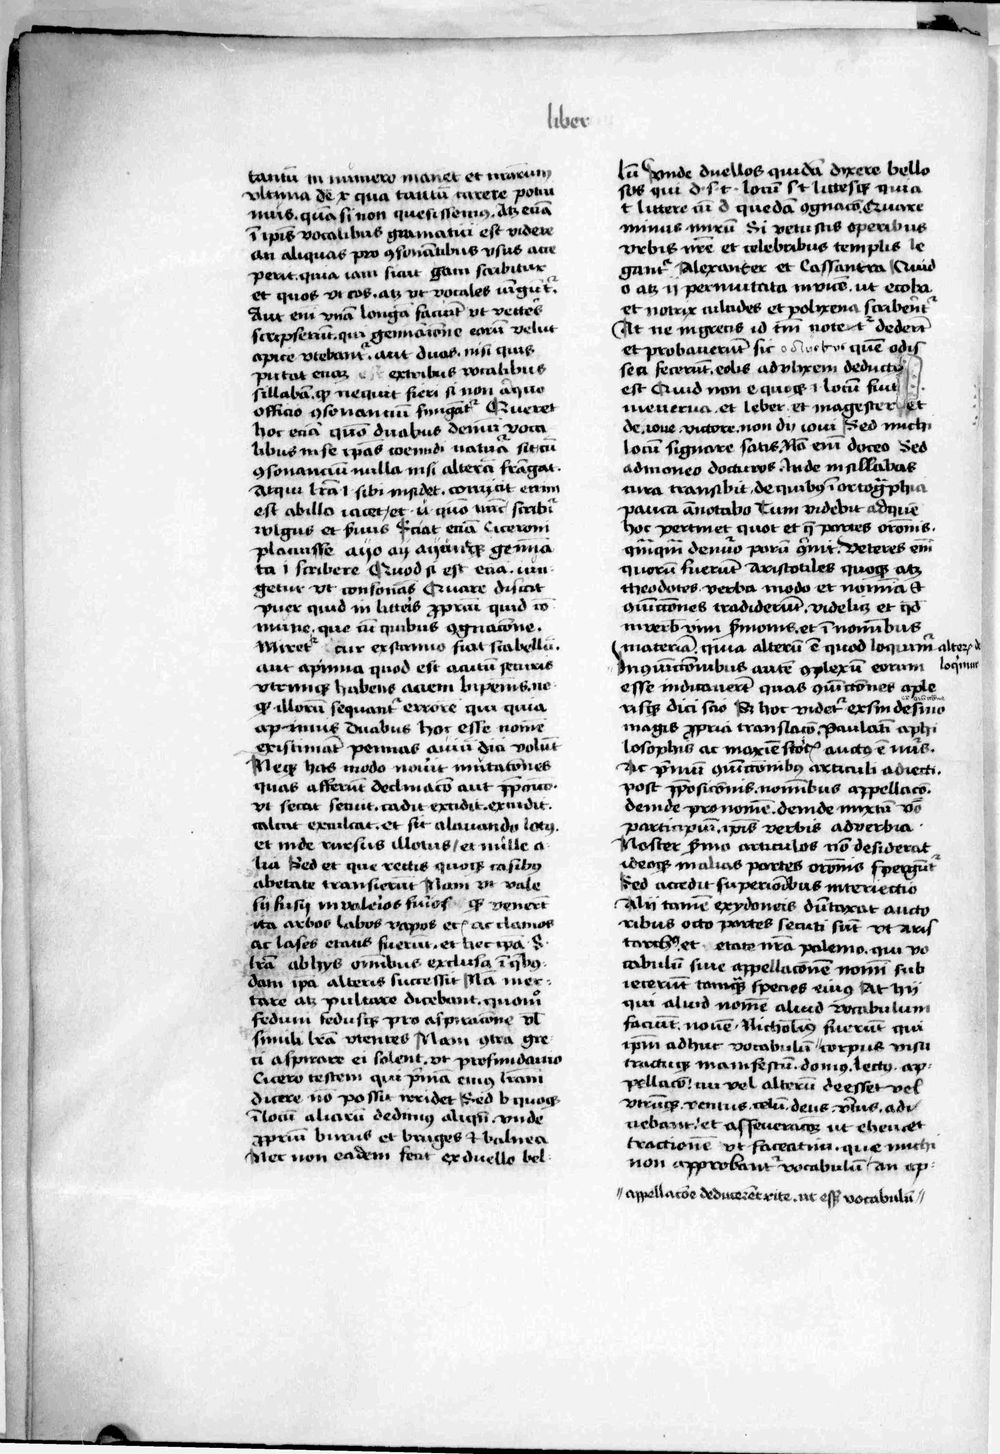 liber
tantū in numero manet et nr̄arum
vltima dē x qua tantū carere potui
mus. quā si non quesissemus. Atqꝫ etiā
ī ipīs vocalibus gramatici est videre
an aliquas pro ꝯsonātibus vsus acce
perit. quia iam sicut gam scribitur
et quos vt cos. atqꝫ vt vocales iūgūtr̄.
Aut eni vnā longā faciūt vt vetēs
scripserūt. qui geminaōne earū velut
apice vtebantr̄. aut duas. nisi quis
putat etiaꝫ ex tribus vocalibus
sillabā. qꝫ nequit fieri si non aliquo
officio ꝯsonantiū fungātr̄ Queret
hoc etiā quō duabus demū voca
libus in se ip̄as coeundi natura sit cū
ꝯsonanciū nulla nisi alterā frāgat.
Atqui lr̄a i sibi insidet. coniicit enim
est ab illo iacet et u quō nūc scribitr̄
vulgus et seruus Sciat etiā Ciceroni
placuisse aiio aiiūqꝫ gemīa
ta i scribere Quod si est etiā iun
getur vt consonās Quare discat
puer quid in littēis ꝓprium quid cō
mune. que cū quibus ꝯgnacōne.
Miretr̄ cur ex scamno fiat scabellū.
aut a pinna quod est acutū securis
vtrimqꝫ habens aciem bipēnis. ne
qꝫ illorū sequantr̄ errore qui quia
a pennis duabus hoc esse nomē
existimāt pennas auiū dici volūt
Neqꝫ has modo nouīt mutacōnes
quas afferūt declinacō aut p̄posicio.
vt secat secuit. cadit excidit. excudit.
calcat exculcat. et fit a lauando lotꝰ.
et inde rursus illotus et mille a
lia Sed et que rectis quoqꝫ casibus
aetate transierūt Nam vt vale
sij fusij in valeīos furios qꝫ venerūt
ita arbos labos vapos etc̄ ac clamos
ac lases etatis fuerūt. et hec ipā s̄.
lr̄a ab hijs omibus exclusa ī qibꝰ.
dam ipā alteris successit Nā mer
tare atqꝫ pultare dicebant. quomō
fedum fedusqꝫ pro aspiracione vl̄
simili lr̄a vtentes Nam ꝯtra gre
ci aspirare ei solent. vt pro fundanio
Cicero testem qui p̄mā eius lr̄am
dicere nō possit irridet Sed b quoqꝫ
ī locū aliarū dedimꝰ aliqn̄. vnde
ꝓprium burus et bruges et balnea
Nec non eadem fecit ex duello bel
lū Vnde duellos quidā dixere bello
sos qui d. s. t. locū s t littesqꝫ quia
t littere cū d quedā ꝯgnacō. Quare
minus mirū Si vetustis operibus
vrbis nr̄e et celebribus templis le
gantr̄ Alexanter et Cassantra Quid
o atqꝫ u permutata inuicē. ut ecoba
et notrix culcides et polixena scriberētr̄
Ac ne in grecis id tm̄ notetr̄ dederūt
et probauerūt sic οδυσσευς quē odis
sea fecerūt. eolis ad vlixem deductꝰ
est Quid non e quoqꝫ i locū fuit
menerua. et leber. et magester et
de. ioue victore. non dij ioui Sed michi
locū signare satis. Nō enī doceo Sed
admoneo docturos. Inde in sillabas
cura transibit. de quibꝰ ī ortogr̄phia
pauca ānotabo Tum videbit ad que
hoc pertinet quot et q̄ partes oroīs.
qūqm̄ de numō parū ꝯuēit. Veteres em̄
quorū fuerūt Aristotiles quoqꝫ atqꝫ
theodotes. verba modo et nomīa et
ꝯūctiones tradiderūt. videlicꝫ et qd̄
in verb vim s̄monis. et ī nomībus
materiā. quia alterū ē quod loqumr̄
alterꝫ de
loqimur
In ꝯūctionibus autē ꝯplexū eorum
esse indicauerūt quas ꝯiūctiones a ple
risqꝫ dici scio Sꝫ hoc videtr̄ ex sindesmo
magis ꝓpria translacō. Paulatī a phi
losophis ac maxīe stoic̄ auctꝰ ē nūs.
Ac p̄mū ꝯūctionibꝰ articuli adiecti.
post p̄posicōnis. nominibus appellacō.
deinde pronomē. deinde mixtū vō
participiū. ipīs verbis aduerbia.
Noster s̄mo articulos nō desiderat
ideoqꝫ in alias partes oroīs spergūtr̄
Sed accedit superioribus interiectio
Alij tamē ex ydoneis dūtaxat aucto
ribus octo partes secuti sūt vt Aris
tarchꝰ et etate nr̄a palemo. qui vo
cabulū siue appellacōnē nomī sub
iecerūt tamqꝫ species eius At hij
qui aliud nomē aliud vocabulum
faciūt. nouē. Nicholominꝰ fuerūt qui
ipm̄ adhuc vocabulū corpus visu
tractuqꝫ manifestū. domꝰ. lectꝰ. ap
pellacō. cui vel alterū deesset vel
vtrūqꝫ. ventus. celū. deus. v̄tus. adi
ciebant. et asseueracōꝫ ut eheu et
tractionē vt faceatim. que michi
non approbantr̄ vocabulū an ap
// appellacōe deducerēt rite. ut essꝫ vocabulū //